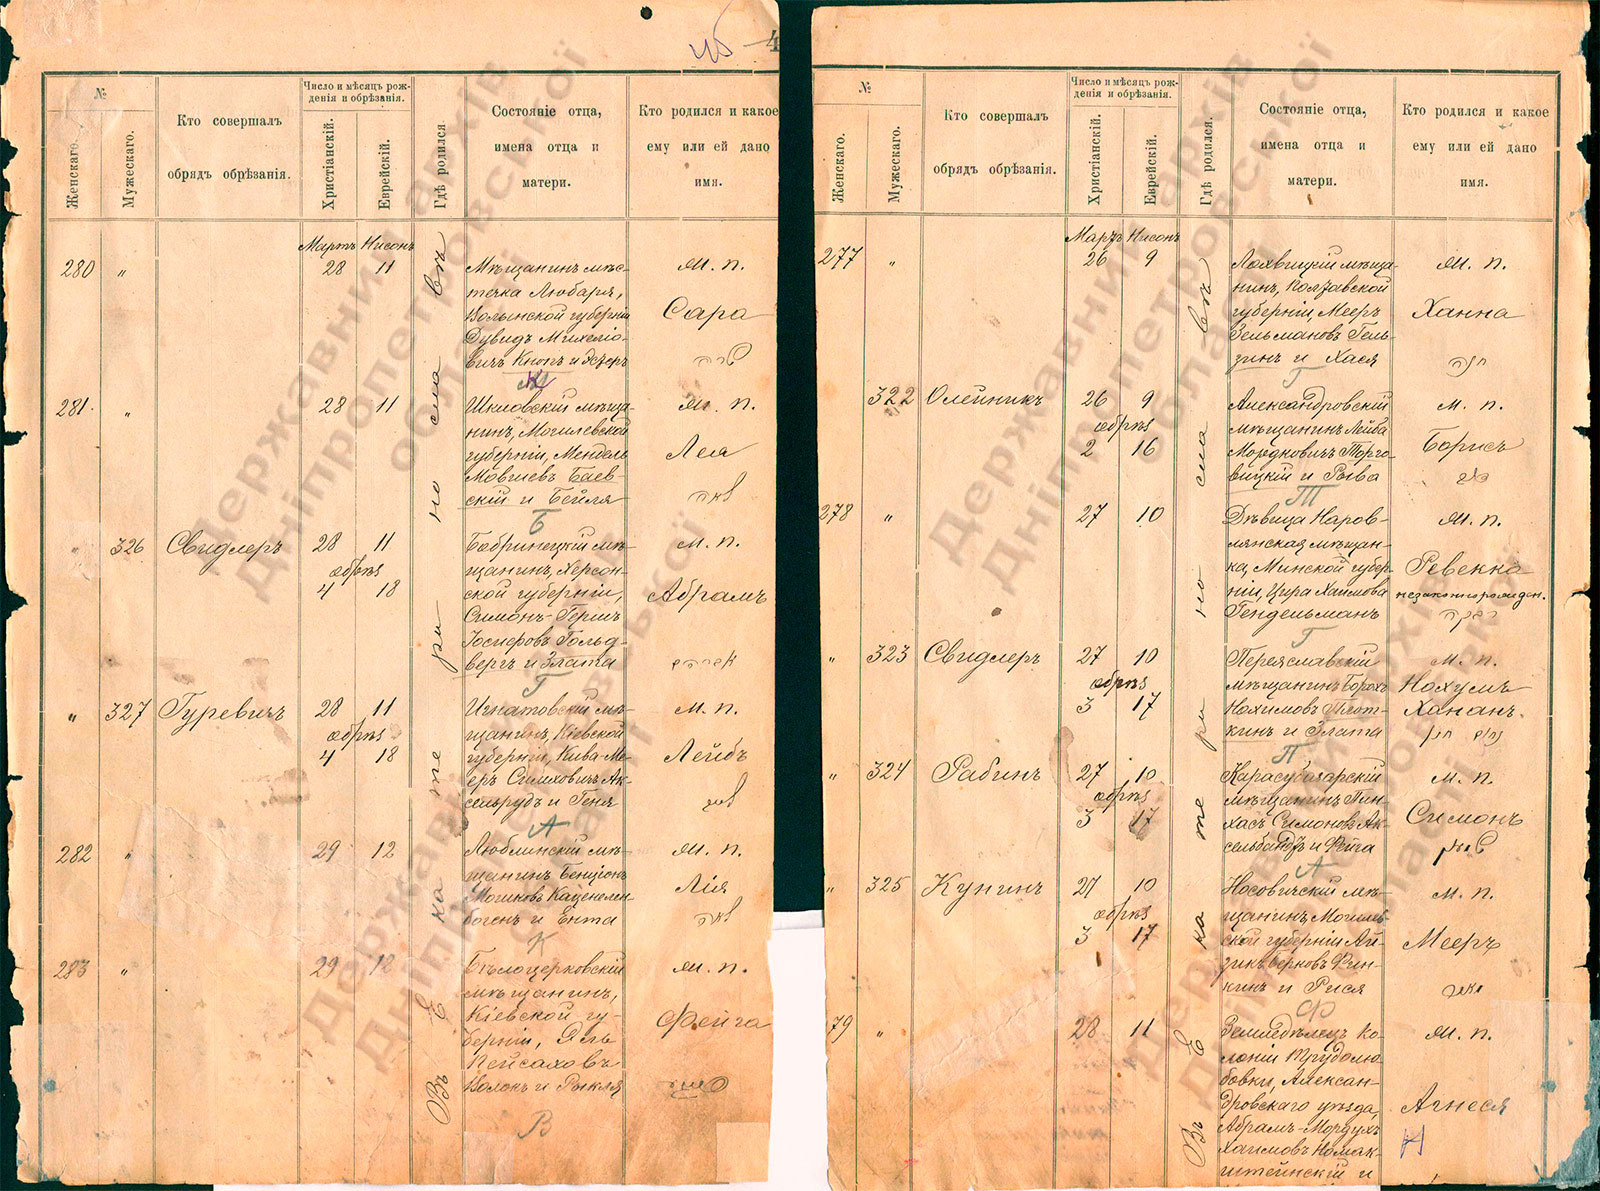 №
Женскаго.
Мужескаго.
Кто совершалъ
обрядъ обрѣзанія.
Число и мѣсяцъ рож-
денія и обрѣзанія.
Христіанскій.
Еврейскій.
Гдѣ родился
Состояніе отца,
имена отца и
матери.
Кто родился и какое
ему или ей дано
имя.
Въ Екатеринославѣ
Мартъ Нисонъ
280 „ 28 11
Мѣщанинъ мѣс-
течка Любаря,
Волынской губерніи
Дувидъ Михеліо-
вичъ Кнопъ и Эстеръ
К
м. п.
Сара
281. „ 28 11
Шкловскій мѣща-
нинъ, Могилевской
губерніи, Мендель
Мовшевъ Баев-
скій и Бейля
Б
м. п.
Леа
„ 326 Свидлеръ 28 11
обрѣз
4 18
Бобринецкій мѣ-
щанинъ, Херсон-
ской губерніи,
Симонъ-Гершъ
Іосифовъ Гольд-
бергъ и Злата
Г
м. п.
Абрамъ
„ 327 Гуревичъ 28 11
обрѣз
4 18
Игнатовскій мѣ-
щанинъ, Кіевской
губерніи, Кива-Ме-
еръ Симховичъ Ак-
сельрудъ и Геня
А
м. п.
Лейбъ
282 „ 29 12
Люблинскій мѣ-
щанинъ Бенціонъ
Каценелен-
богенъ и Ента
К
м. п.
Лія
283 „ 29 12
Бѣлоцерковскій
мѣщанинъ,
Кіевской гу-
берніи,
Пейсаховъ
Волокъ и Рыкля
В
м. п.
Фейга
№
Женскаго.
Мужескаго.
Кто совершалъ
обрядъ обрѣзанія.
Число и мѣсяцъ рож-
денія и обрѣзанія.
Христіанскій.
Еврейскій.
Гдѣ родился.
Состояніе отца,
имена отца и
матери.
Кто родился и какое
ему или ей дано
имя.
Въ Екатеринославѣ
Мартъ Нисонъ
277 „ 26 9
Лохвицкій мѣща-
нинъ, Полтавской
губерніи, Мееръ
Зельмановъ Гель-
зинъ и Хася
Г
м. п.
Ханна
322 Олейникъ 26 9
обрѣз
2 16
Александровскій
мѣщанинъ Лейба
Мордковичъ Торго-
вицкій и Рыва
Т
м. п.
Борисъ
278 „ 27 10
Дѣвица Наров-
лянская мѣщан-
ка, Минской губер-
ніи, Цира Хаимова
Гендельманъ
Г
м. п.
Ревекка
незаконнорожден.
רבקה
„ 323 Свидлеръ 27 10
обрѣз
3 17
Переяславскій
мѣщанинъ Борохъ
Нохимовъ Плот-
кинъ и Злата
П
м. п.
Нохумъ
Хананъ.
„ 324 Рабинъ 27 10
обрѣз
3 17
Карасубазарскій
мѣщанинъ Пин-
хасъ Симоновъ Ак-
сельбандъ и Фейга
А
м. п.
Симонъ
„ 325 Кунинъ 27 10
обрѣз
3 17
Носовичскій мѣ-
щанинъ, Могилев-
ской губерніи Ай-
зикъ Берковъ Фин-
кинъ и Рися
Ф
м. п.
Мееръ
79 „ 28 11
Земледѣлецъ ко-
лоніи Трудолю-
бовки, Александ-
ровскаго уѣзда,
Абрамъ-Мордухъ
Хаимовъ Номак-
штейнскій и
м. п.
Агнеся
Н
Державний архів
Дніпропетровської
області